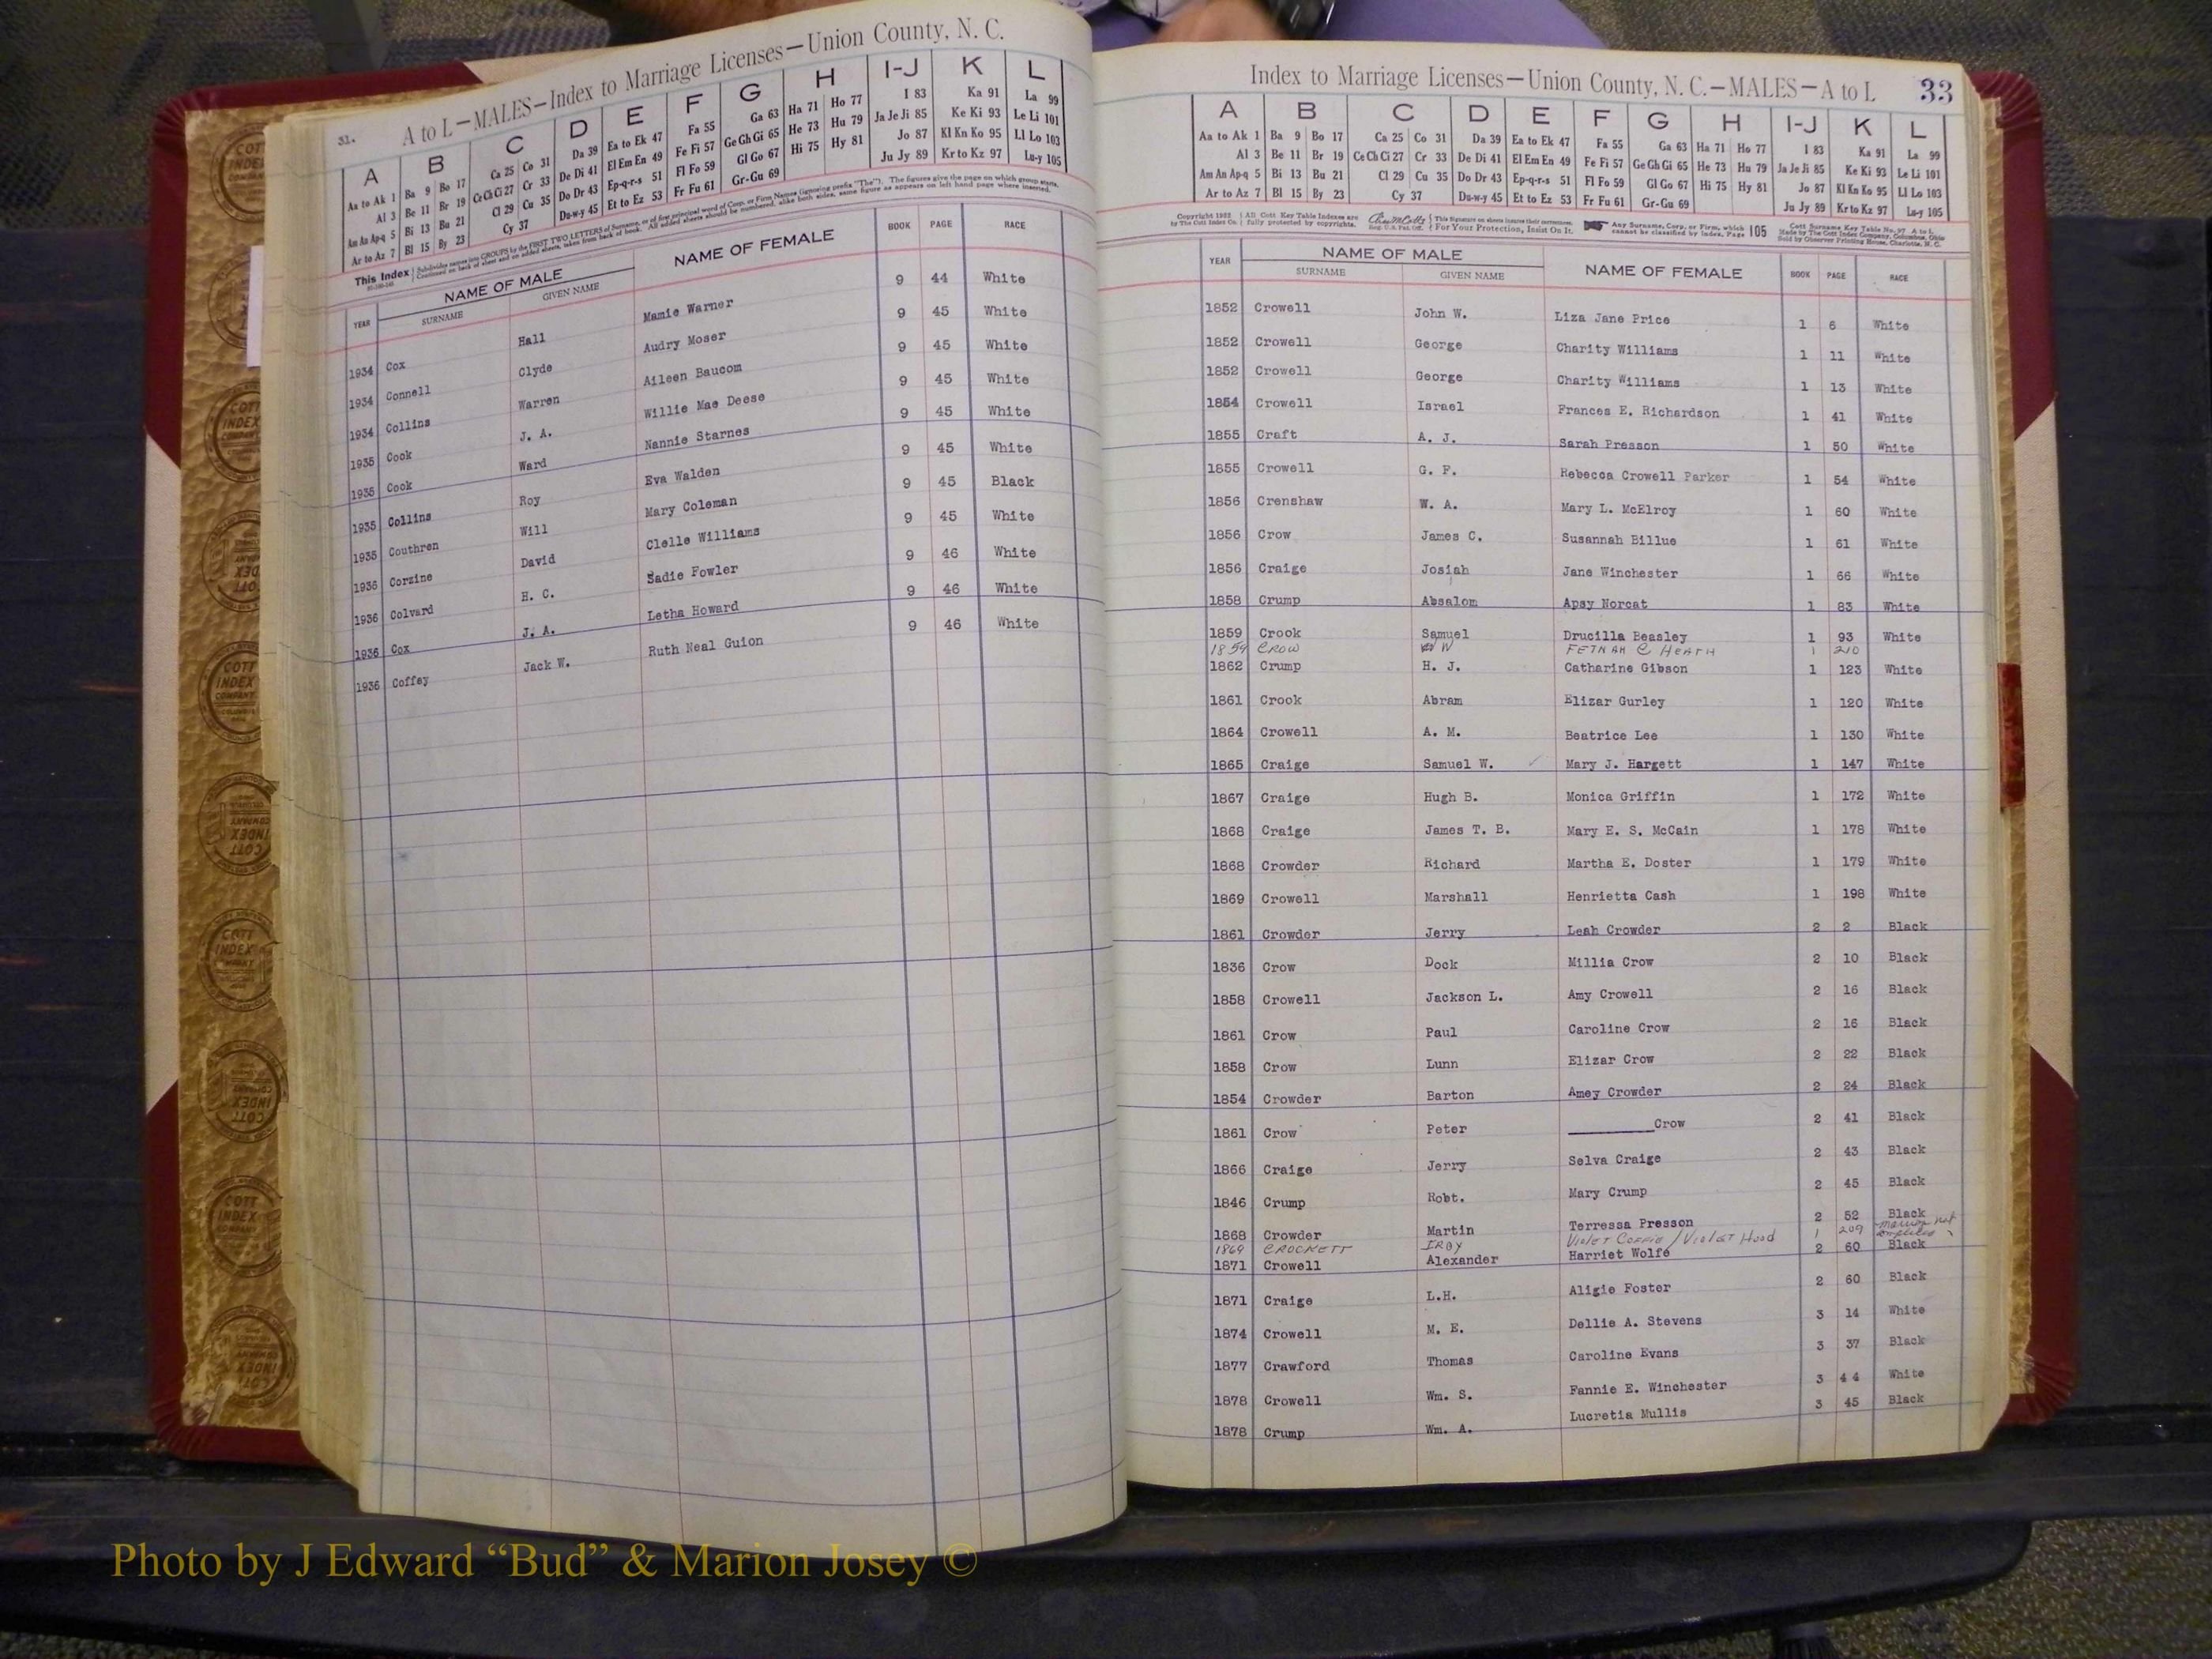 31. A to L—MALES—Index to Marriage Licenses—Union County, N. C.
A B C D E F G H I-J K L
Aa to Ak 1 Ba 9 Bo 17 Ca 25 Co 31 Da 39 Ea to Ek 47 Fa 55 Ga 63 Ha 71 Ho 77 I 83 Ka 91 La 99
Al 3 Be 11 Br 19 Ce Ch Ci 27 Cr 33 De Di 41 El Em En 49 Fe Fi 57 Ge Gh Gi 65 He 73 Hu 79 Ja Je Ji 85 Ke Ki 93 Le Li 101
Am An Ap-q 5 Bi 13 Bu 21 Cl 29 Cu 35 Do Dr 43 Ep-q-r-s 51 Fl Fo 59 Gl Go 67 Hi 75 Hy 81 Jo 87 Kl Kn Ko 95 Ll Lo 103
Ar to Az 7 Bl 15 By 23 Cy 37 Du-w-y 45 Et to Ez 53 Fr Fu 61 Gr-Gu 69 Ju Jy 89 Kr to Kz 97 Lu-y 105
This Index Subdivides names into GROUPS by the FIRST TWO LETTERS of Surname, or of first principal word of Corp. or Firm Names (ignoring prefix "The"). The figures give the page on which group starts.
Continued on back of sheet and on added sheets, taken from back of book. All added sheets should be numbered, alike both sides, same figure as appears on left hand page where inserted.
YEAR NAME OF MALE NAME OF FEMALE BOOK PAGE RACE
SURNAME GIVEN NAME
1934 Cox Hall Mamie Warner 9 44 White
1934 Connell Clyde Audry Moser 9 45 White
1934 Collins Warren Aileen Baucom 9 45 White
1935 Cook J. A. Willie Mae Deese 9 45 White
1935 Cook Ward Nannie Starnes 9 45 White
1935 Collins Roy Eva Walden 9 45 White
1935 Couthren Will Mary Coleman 9 45 Black
1936 Corzine David Clelle Williams 9 45 White
1936 Colvard H. C. Sadie Fowler 9 46 White
1936 Cox J. A. Letha Howard 9 46 White
1936 Coffey Jack W. Ruth Neal Guion 9 46 White
Index to Marriage Licenses—Union County, N. C.—MALES—A to L 33
A B C D E F G H I-J K L
Aa to Ak 1 Ba 9 Bo 17 Ca 25 Co 31 Da 39 Ea to Ek 47 Fa 55 Ga 63 Ha 71 Ho 77 I 83 Ka 91 La 99
Al 3 Be 11 Br 19 Ce Ch Ci 27 Cr 33 De Di 41 El Em En 49 Fe Fi 57 Ge Gh Gi 65 He 73 Hu 79 Ja Je Ji 85 Ke Ki 93 Le Li 101
Am An Ap-q 5 Bi 13 Bu 21 Cl 29 Cu 35 Do Dr 43 Ep-q-r-s 51 Fl Fo 59 Gl Go 67 Hi 75 Hy 81 Jo 87 Kl Kn Ko 95 Ll Lo 103
Ar to Az 7 Bl 15 By 23 Cy 37 Du-w-y 45 Et to Ez 53 Fr Fu 61 Gr-Gu 69 Ju Jy 89 Kr to Kz 97 Lu-y 105
Copyright 1922 by The Cott Index Co. All Cott Key Table Indexes are fully protected by copyrights. This Signature on sheets insures their correctness. For Your Protection, Insist On It. Any Surname, Corp. or Firm, which cannot be classified by Index, Page 105
YEAR NAME OF MALE NAME OF FEMALE BOOK PAGE RACE
SURNAME GIVEN NAME
1852 Crowell John W. Liza Jane Price 1 6 White
1852 Crowell George Charity Williams 1 11 White
1852 Crowell George Charity Williams 1 13 White
1854 Crowell Israel Frances E. Richardson 1 41 White
1855 Craft A. J. Sarah Presson 1 50 White
1855 Crowell G. F. Rebecca Crowell Parker 1 54 White
1856 Crenshaw W. A. Mary L. McElroy 1 60 White
1856 Crow James C. Susannah Billue 1 61 White
1856 Craige Josiah Jane Winchester 1 66 White
1858 Crump Absalom Apsy Norcat 1 83 White
1859 Crook Samuel Drucilla Beasley 1 93 White
1859 CROW W FETNAH C HEATH 1 210
1862 Crump H. J. Catharine Gibson 1 123 White
1861 Crook Abram Elizar Gurley 1 120 White
1864 Crowell A. M. Beatrice Lee 1 130 White
1865 Craige Samuel W. Mary J. Hargett 1 147 White
1867 Craige Hugh B. Monica Griffin 1 172 White
1868 Craige James T. B. Mary E. S. McCain 1 178 White
1868 Crowder Richard Martha E. Doster 1 179 White
1869 Crowell Marshall Henrietta Cash 1 198 White
1861 Crowder Jerry Leah Crowder 2 2 Black
1836 Crow Dock Millia Crow 2 10 Black
1858 Crowell Jackson L. Amy Crowell 2 16 Black
1861 Crow Paul Caroline Crow 2 16 Black
1858 Crow Lunn Elizar Crow 2 22 Black
1854 Crowder Barton Amey Crowder 2 24 Black
1861 Crow Peter ________Crow 2 41 Black
1866 Craige Jerry Selva Craige 2 43 Black
1846 Crump Robt. Mary Crump 2 45 Black
1868 Crowder Martin Terressa Presson 2 52 Black
1869 CROCKETT IRBY VIOLET COFFIE / VIOLET HOOD 1 209 marriage not
1871 Crowell Alexander Harriet Wolfe 2 60 Black
1871 Craige L.H. Aligie Foster 2 60 Black
1874 Crowell M. E. Dellie A. Stevens 3 14 White
1877 Crawford Thomas Caroline Evans 3 37 Black
1878 Crowell Wm. S. Fannie E. Winchester 3 44 White
1878 Crump Wm. A. Lucretia Mullis 3 45 Black
Photo by J Edward “Bud” & Marion Josey ©